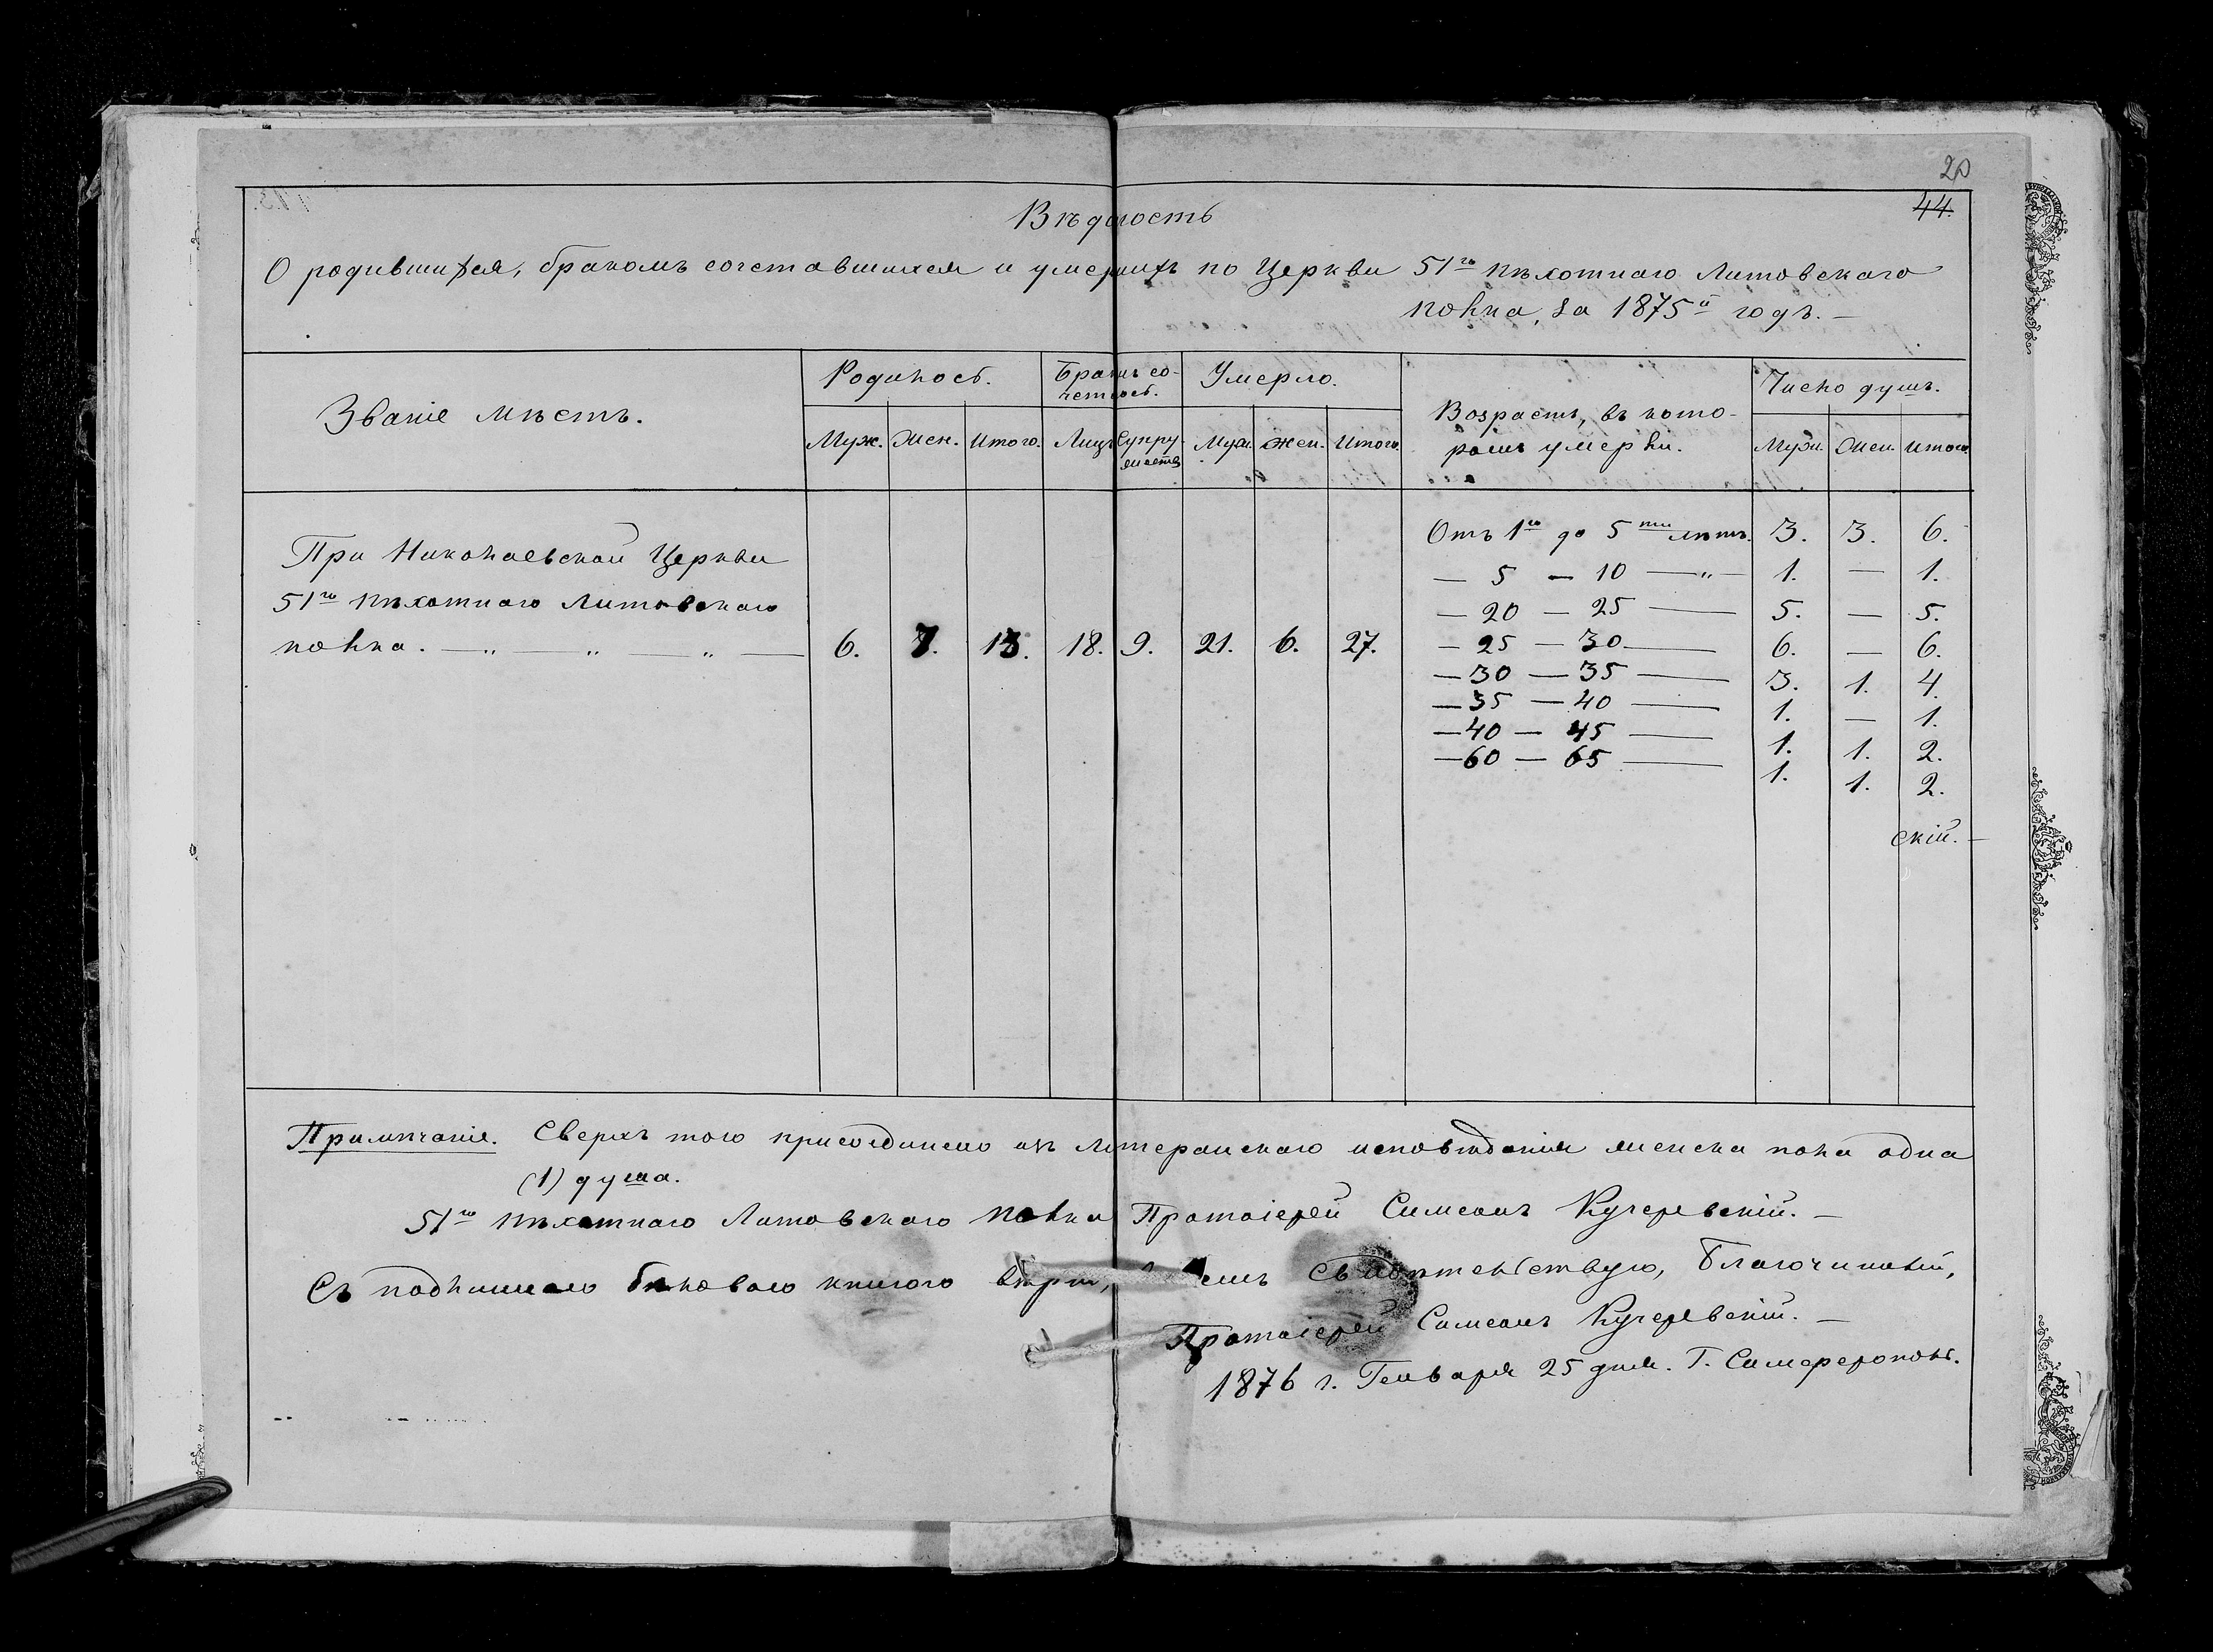 20
44.
Вѣдомость
О родившихся, бракомъ сочетавшихся и умершихъ по Церкви 51го пѣхотнаго Литовскаго
полка, за 1875й годъ. —
Званіе мѣстъ.
Родилось.
Бракъ со-
четалось.
Умерло.
Возрастъ, въ кото-
ромъ умерли.
Число душъ.
Муж. Жен. Итого. Лицъ Супру-
жествъ Муж. Жен. Итого. Муж. Жен. Итого
При Николаевской Церкви
51го пѣхотнаго Литовскаго
полка. — „ — „ — „ — 6. 7. 13. 18. 9. 21. 6. 27.
Отъ 1го до 5ти лѣтъ. 3. 3. 6.
— 5 — 10 — „ — 1. — 1.
— 20 — 25 — 5. — 5.
— 25 — 30 — 6. — 6.
— 30 — 35 — 3. 1. 4.
— 35 — 40 — 1. — 1.
— 40 — 45 — 1. 1. 2.
— 60 — 65 — 1. 1. 2.
скій. —
Примѣчаніе. Сверхъ того присоединено изъ Лютеранскаго исповѣданія женска пола одна
(1) душа.
51го пѣхотнаго Литовскаго полка Протоіерей Симеонъ Кучеревскій. —
Съ подлинною бѣловою книгою вѣрно, въ чемъ свидѣтельствую, Благочинный,
Протоіерей Симеонъ Кучеревскій. —
1876 г. Генваря 25 дня. Г. Симферополь.